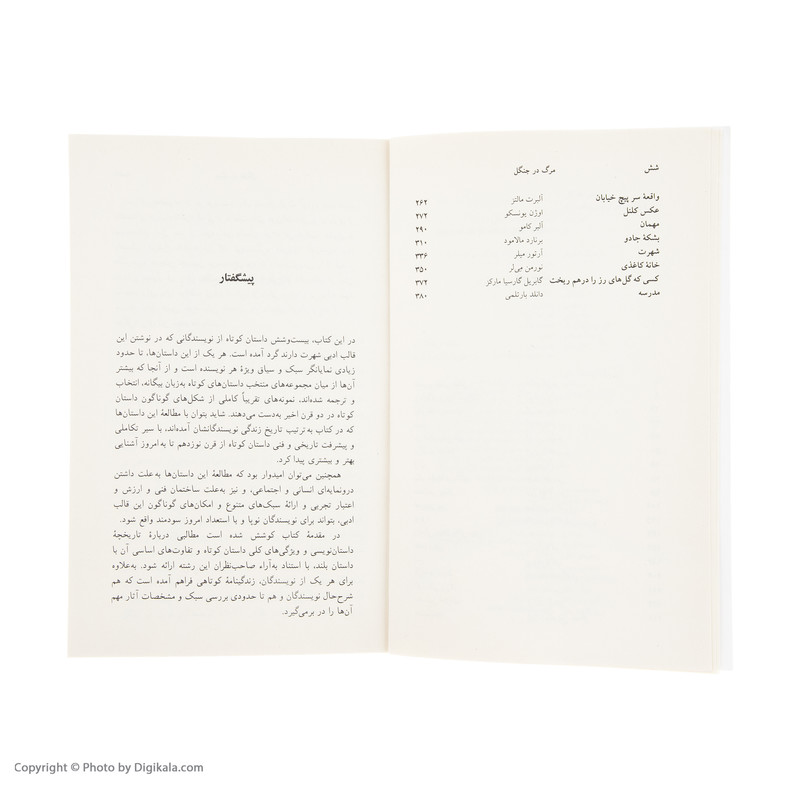 شش مرگ در جنگل
واقعهٔ سر پیچ خیابان آلبرت مالتز ۲۶۲
عکس کلنل اوژن یونسکو ۲۷۲
مهمان آلبر کامو ۲۹۰
بشکهٔ جادو برنارد مالامود ۳۱۰
شهرت آرتور میلر ۳۳۶
خانهٔ کاغذی نورمن می‌لر ۳۵۰
کسی که گل‌های رز را درهم ریخت گابریل گارسیا مارکز ۳۷۲
مدرسه دانلد بارتلمی ۳۸۰
پیشگفتار
در این کتاب، بیست‌وشش داستان کوتاه از نویسندگانی که در نوشتن این
قالب ادبی شهرت دارند گرد آمده است. هر یک از این داستان‌ها، تا حدود
زیادی نمایانگر سبک و سیاق ویژهٔ هر نویسنده است و از آنجا که بیشتر
آن‌ها از میان مجموعه‌های منتخب داستان‌های کوتاه به‌زبان بیگانه، انتخاب
و ترجمه شده‌اند، نمونه‌های تقریباً کاملی از شکل‌های گوناگون داستان
کوتاه در دو قرن اخیر به‌دست می‌دهند. شاید بتوان با مطالعهٔ این داستان‌ها
که در کتاب به‌ترتیب تاریخ زندگی نویسندگانشان آمده‌اند، با سیر تکاملی
و پیشرفت تاریخی و فنی داستان کوتاه از قرن نوزدهم تا به‌امروز آشنایی
بهتر و بیشتری پیدا کرد.
همچنین می‌توان امیدوار بود که مطالعهٔ این داستان‌ها به‌علت داشتن
درونمایه‌ای انسانی و اجتماعی، و نیز به‌علت ساختمان فنی و ارزش و
اعتبار تجربی و ارائهٔ سبک‌های متنوع و امکان‌های گوناگون این قالب
ادبی، بتواند برای نویسندگان نوپا و با استعداد امروز سودمند واقع شود.
در مقدمهٔ کتاب کوشش شده است مطالبی دربارهٔ تاریخچهٔ
داستان‌نویسی و ویژگی‌های کلی داستان کوتاه و تفاوت‌های اساسی آن با
داستان بلند، با استناد به‌آراء صاحب‌نظران این رشته ارائه شود. به‌علاوه
برای هر یک از نویسندگان، زندگینامهٔ کوتاهی فراهم آمده است که هم
شرح‌حال نویسندگان و هم تا حدودی بررسی سبک و مشخصات آثار مهم
آن‌ها را در برمی‌گیرد.
Copyright © Photo by Digikala.com